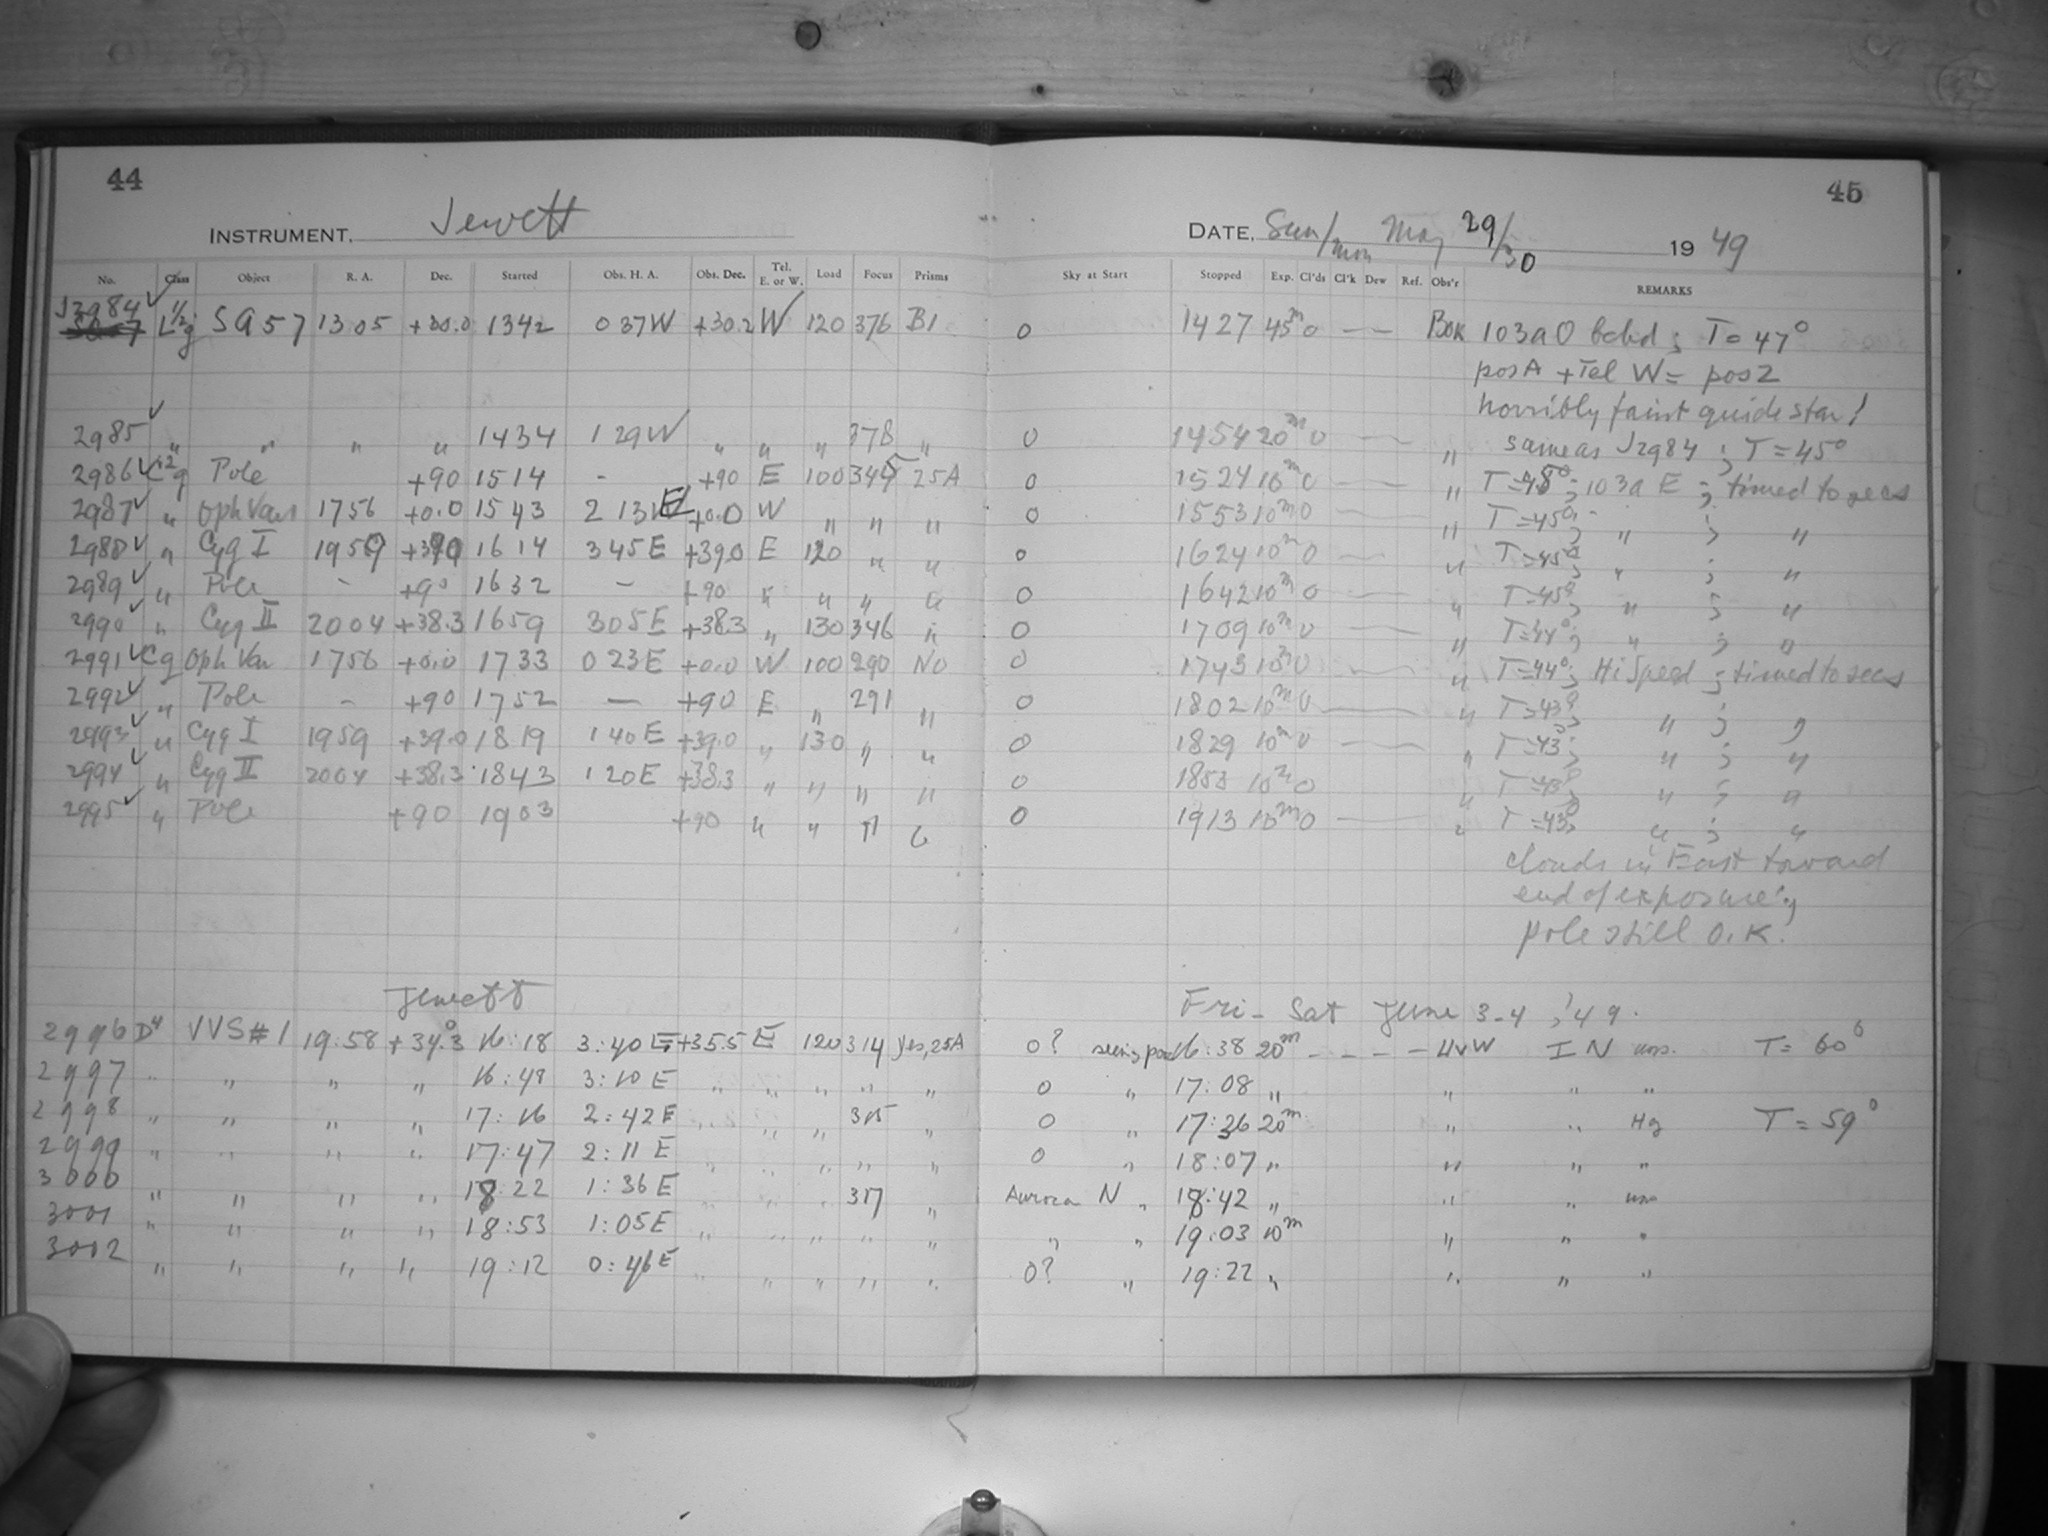 44
45
INSTRUMENT, Jewett
DATE, Sun/Mon May 29/30 1949
No. Class Object R. A. Dec. Started Obs. H. A. Obs. Dec. Tel. E. or W. Load Focus Prisms Sky at Start Stopped Exp. Cl'ds Cl'k Dew Ref. Obs'r REMARKS
J2984 ✓ L1/2g SA57 1305 +30.0 1342 037W +30.2 W 120 376 B1 0 1427 45m 0 — — Bok 103aO bckd; T=47°
posA + Tel W = pos2
horribly faint guide star!
2985 ✓ " " " " 1434 129W " " " 378 " 0 1454 20m 0 — " same as J2984; T=45°
2986 ✓ g Pole +90 1514 - +90 E 100 345 25A 0 1524 10m 0 — " T=48°; 103a E; timed to secs
2987 ✓ " Oph Van 1756 +0.0 1543 213E +0.0 W " " " 0 1553 10m 0 — " T=45°; " ; "
2988 ✓ " Cyg I 1959 +39.0 1614 345E +39.0 E 120 " " 0 1624 10m 0 — " T=45°; " ; "
2989 ✓ " Pole - +90 1632 - +90 " " " " 0 1642 10m 0 — " T=45°; " ; "
2990 ✓ " Cyg II 2004 +38.3 1659 305E +38.3 " 130 346 " 0 1709 10m 0 — " T=44°; " ; "
2991 ✓ Cg Oph Van 1756 +0.0 1733 023E +0.0 W 100 290 No 0 1743 10m 0 — " T=44°; Hi Speed; timed to secs
2992 ✓ " Pole - +90 1752 — +90 E " 291 " 0 1802 10m 0 — " T=43°; " ; "
2993 ✓ " Cyg I 1959 +39.0 1819 140E +39.0 " 130 " " 0 1829 10m 0 — " T=43°; " ; "
2994 ✓ " Cyg II 2004 +38.3 1843 120E +38.3 " " " " 0 1853 10m 0 " T=43°; " ; "
2995 ✓ " Pole +90 1903 +90 " " " " 0 1913 10m 0 — " T=43°; " ; "
clouds in East toward
end of exposure;
pole still O.K.
Jewett
Fri - Sat June 3-4, '49.
2996 D4 VVS#1 19:58 +34.°3 16:18 3:40 E +35.5 E 120 314 yes, 25A 0? seeing poor 16:38 20m - - - - HvW I N T= 60°
2997 " " " " 16:48 3:10 E " " " " " 0 " 17:08 " " " "
2998 " " " " 17:16 2:42 E " " " 315 " 0 " 17:36 20m " " Hg T= 59°
2999 " " " " 17:47 2:11 E " " " " " 0 " 18:07 " " " "
3000 " " " " 18:22 1:36 E " " " 317 " Aurora N " 18:42 " " "
3001 " " " " 18:53 1:05 E " " " " " " " 19:03 10m " " "
3002 " " " " 19:12 0:46 E " " " " " 0? " 19:22 " " " "